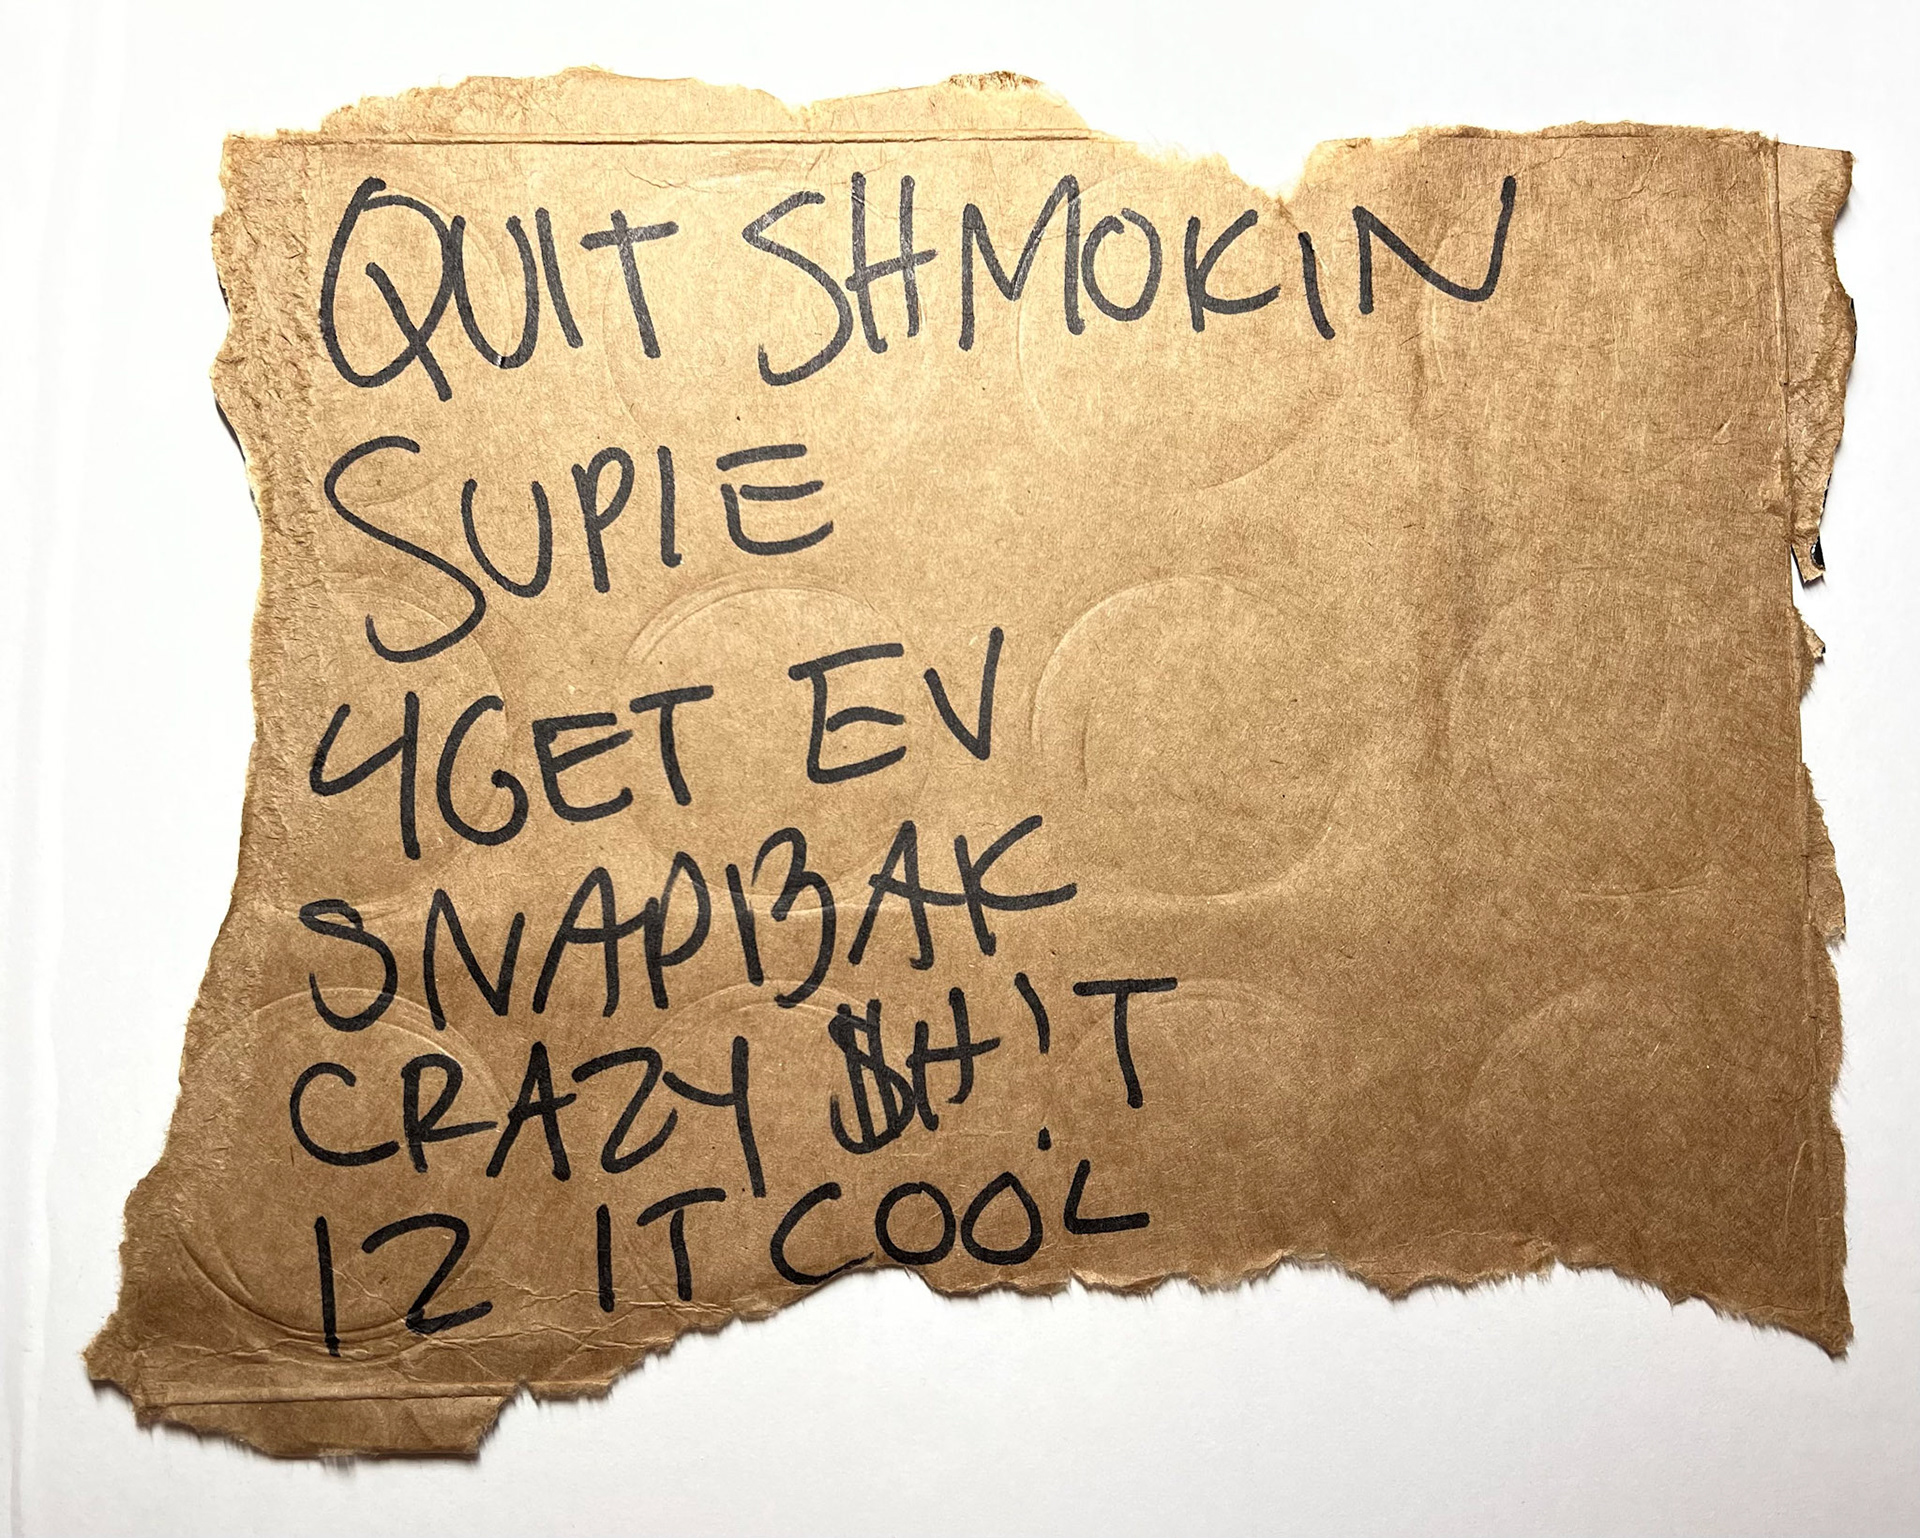 QUIT SHMOKIN
SUPIE
4GET EV
SNAPBAK
CRAZY $H!T
IZ IT COOL